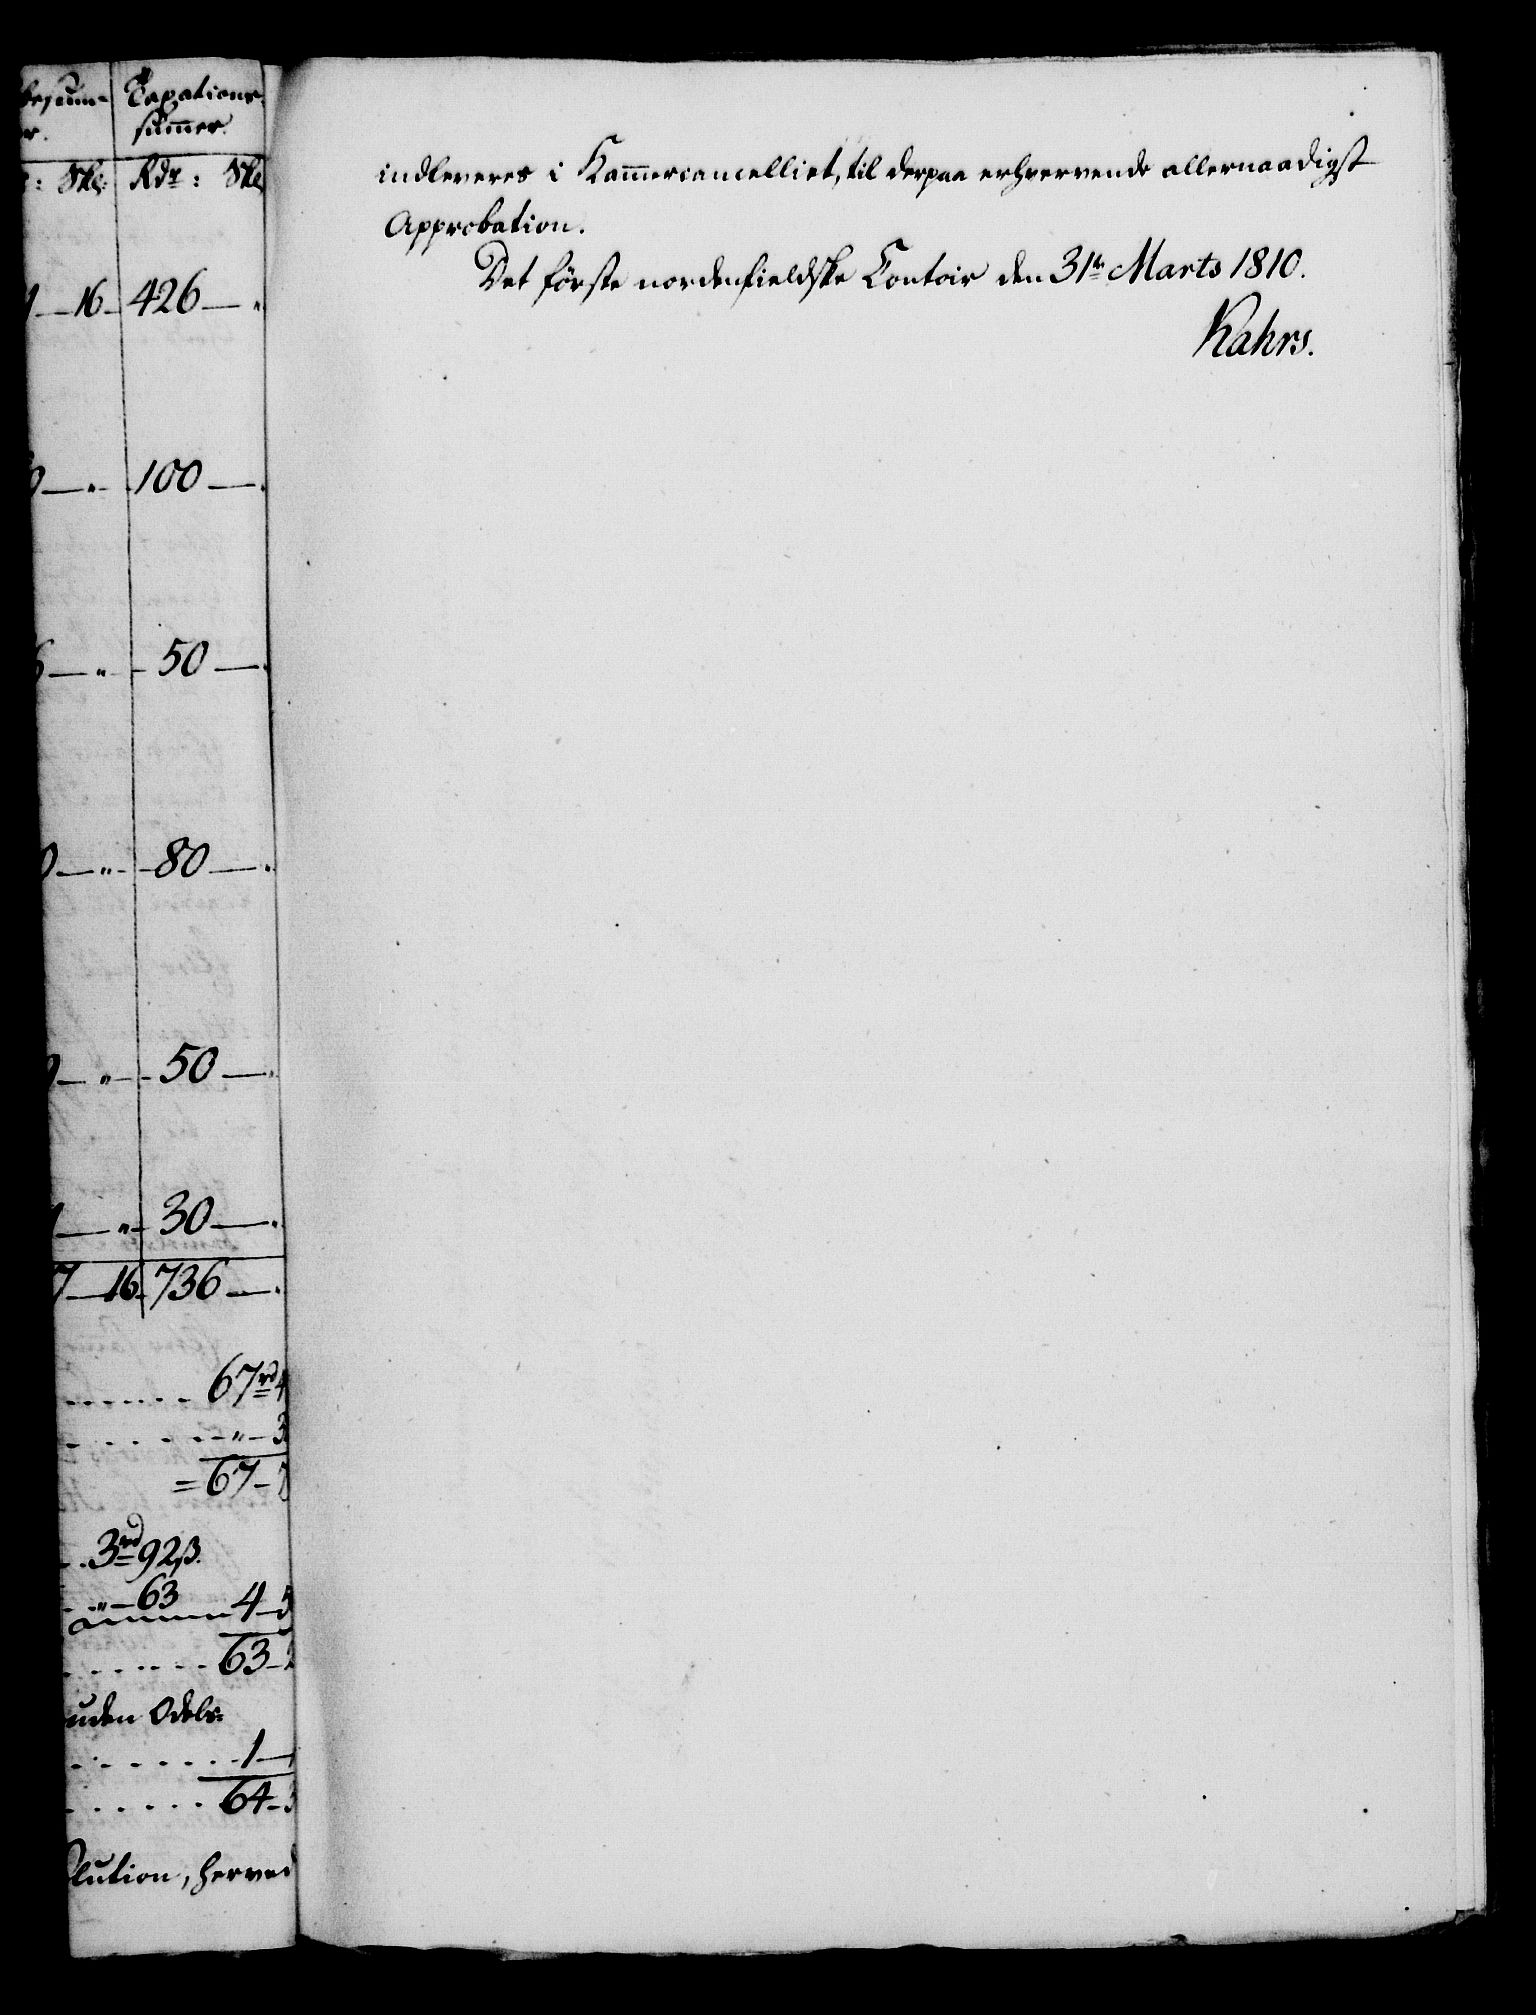 Taxations
summer.
Skl: Rdr: Skl
16 426 — "
— " — 100 — "
— " — 50 — "
— " — 80 — "
— " — 50 — "
— " — 30 — "
7 — 16 736 — "
67rd
" —
= 67 —
3rd 92ß.
" — 63
4 —
63 —
uden Odels-
1 —
64 —
lution, herved
indleveres i Kam̅ercancelliet, til derpaa erhvervende allernaadigst
Approbation.
Det förste nordenfieldske Contoir den 31te Marts 1810.
Kahrs.